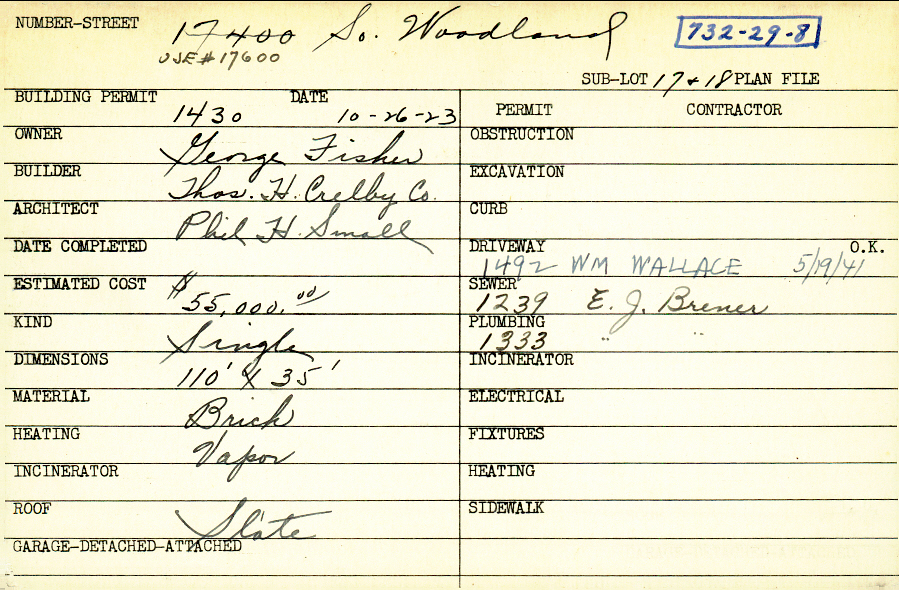 NUMBER-STREET 17400 So. Woodland 732-29-8
USE #17600
SUB-LOT 17 & 18 PLAN FILE
BUILDING PERMIT 1430 DATE 10-26-23
PERMIT CONTRACTOR
OWNER George Fisher
OBSTRUCTION
BUILDER Thos. H. Crelby Co.
EXCAVATION
ARCHITECT Phil H. Small
CURB
DATE COMPLETED
DRIVEWAY 1492 WM WALLACE 5/19/41 O.K.
ESTIMATED COST $55,000.00
SEWER 1239 E. J. Brener
KIND Single
PLUMBING 1333 " "
DIMENSIONS 110' X 35'
INCINERATOR
MATERIAL Brick
ELECTRICAL
HEATING Vapor
FIXTURES
INCINERATOR
HEATING
ROOF Slate
SIDEWALK
GARAGE-DETACHED-ATTACHED